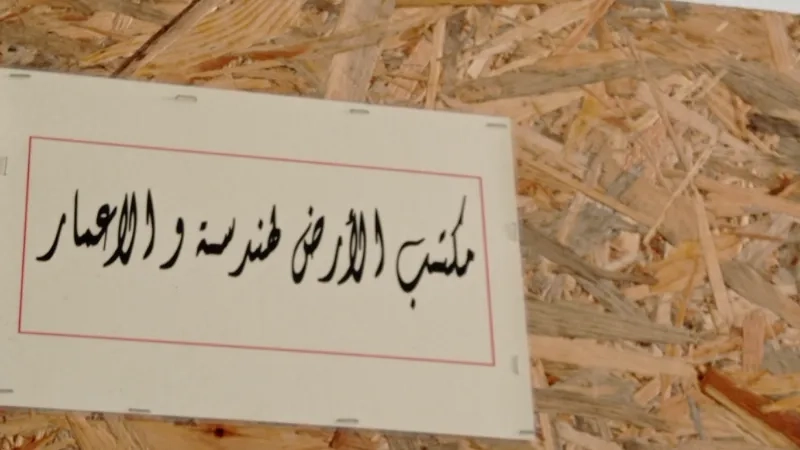 مكتب الأرض لهندسة و الاعمار